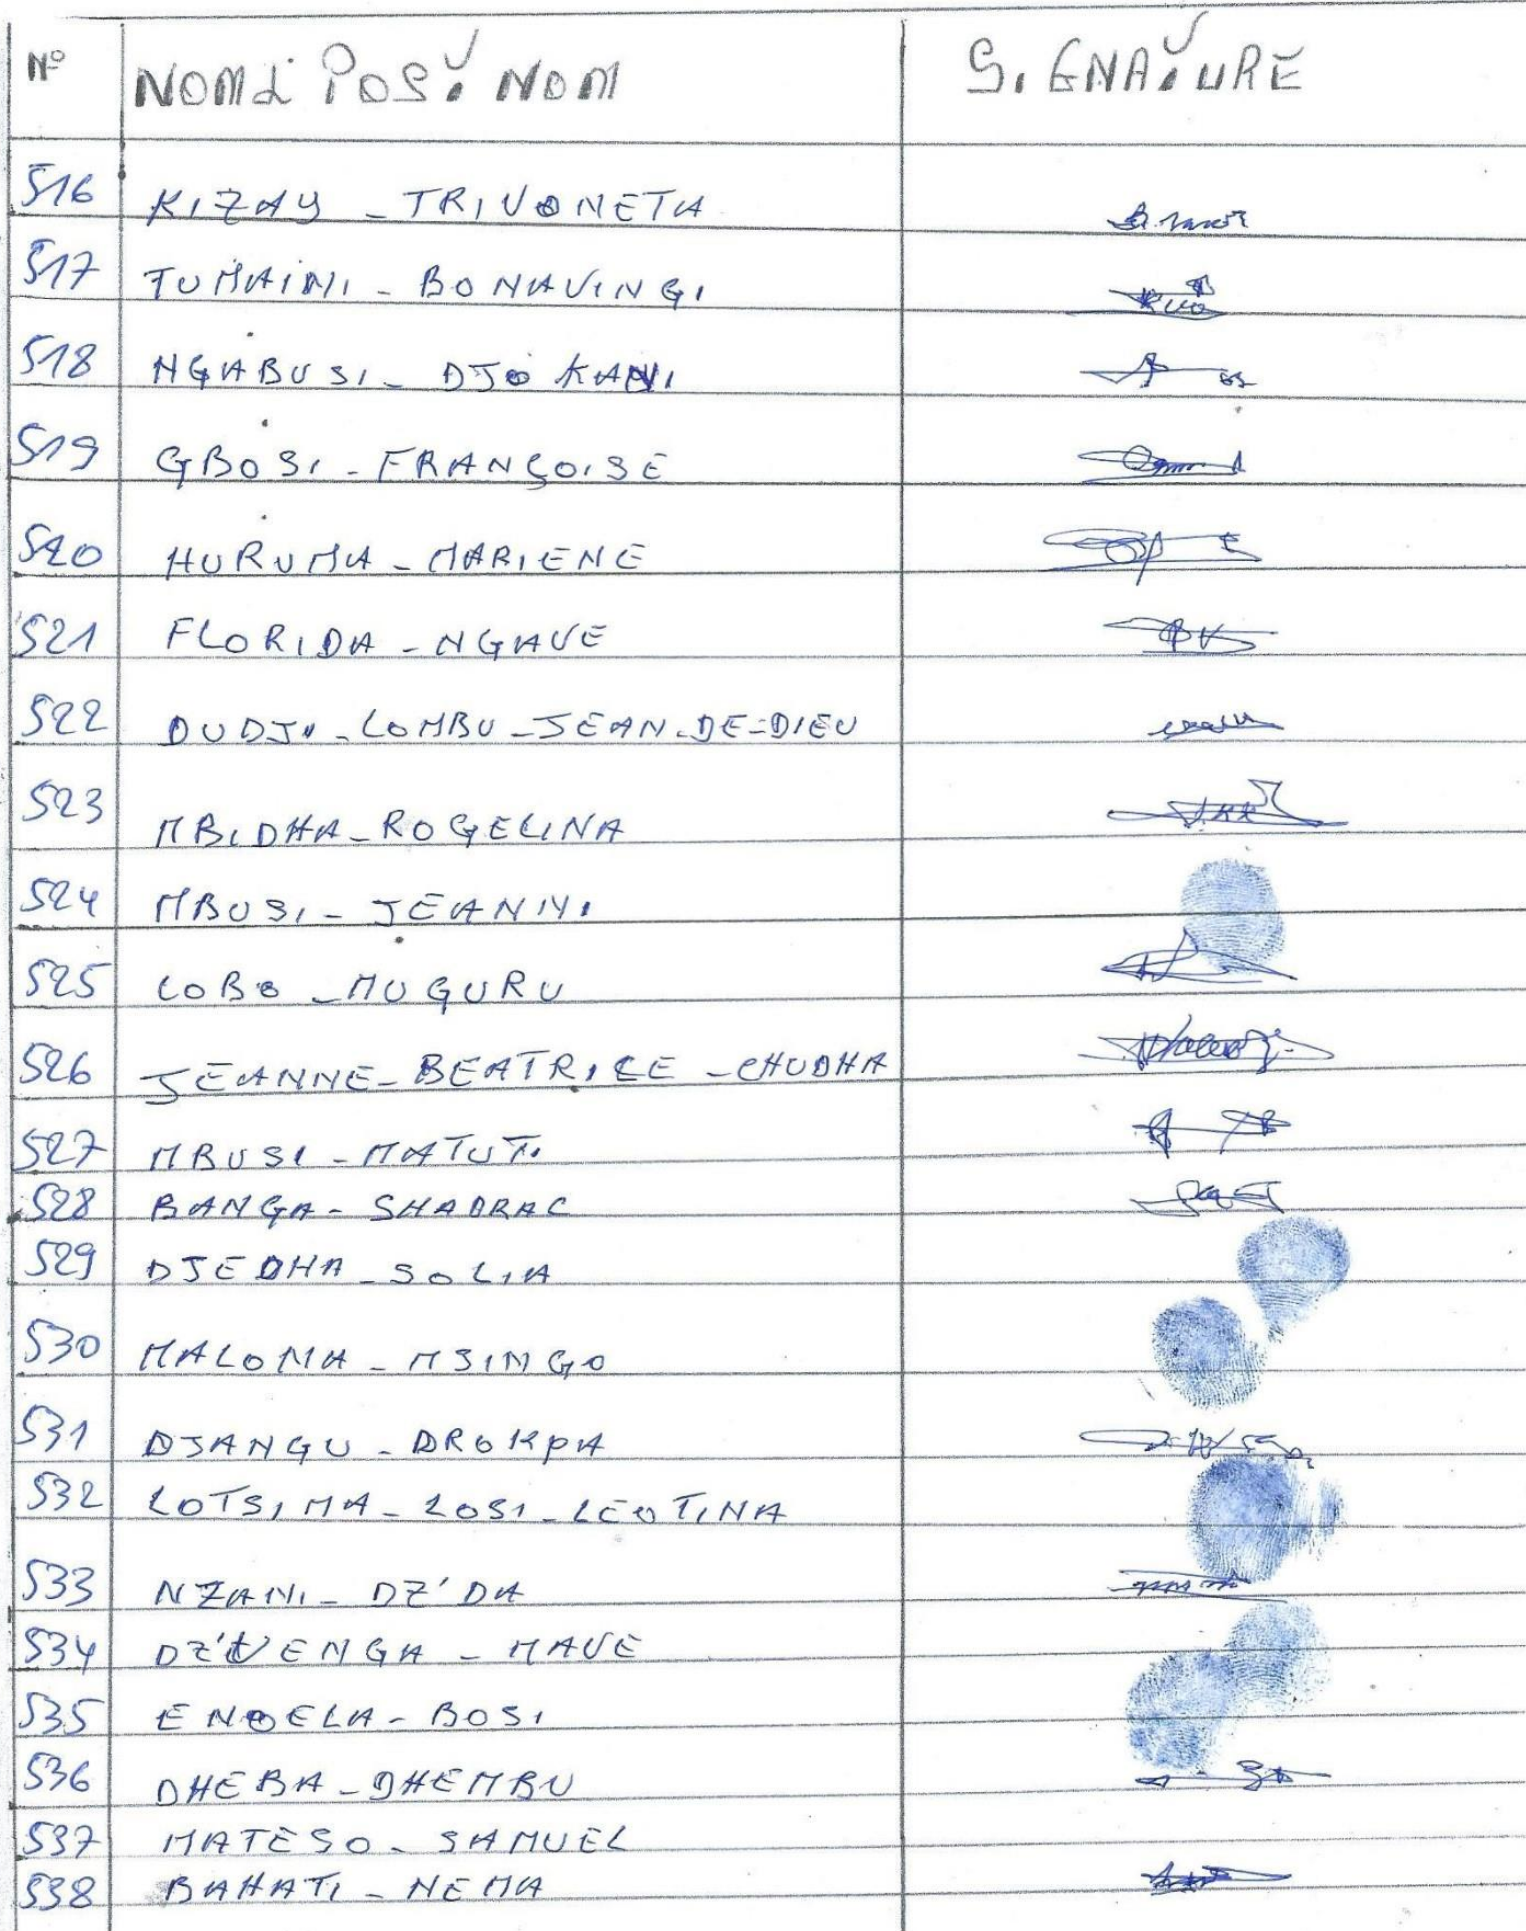 N° NOM & POST NOM SIGNATURE
516 KIZAY - TRIVONETA
517 TUMAINI - BONAVINGI
518 NGABUSI - DJO KANI
519 GBOSI - FRANÇOISE
520 HURUMA - MARIENE
521 FLORIDA - NGAVE
522 DUDJI - LOMBU - JEAN-DE-DIEU
523 MBIDHA - ROGELINA
524 MBUSI - JEANNI
525 LOBO - MUGURU
526 JEANNE - BEATRICE - CHUDHA
527 MBUSI - MATUTI
528 BANGA - SHADRAC
529 DJEDHA - SOLIA
530 MALOMA - MSINGO
531 DJANGU - DROKPA
532 LOTSIMA - LOSI - LEOTINA
533 NZANI - DZ'DA
534 DZ'VENGA - MAVE
535 ENOELA - BOSI
536 DHEBA - DHEMBU
537 MATESO - SAMUEL
538 BAHATI - NEMA